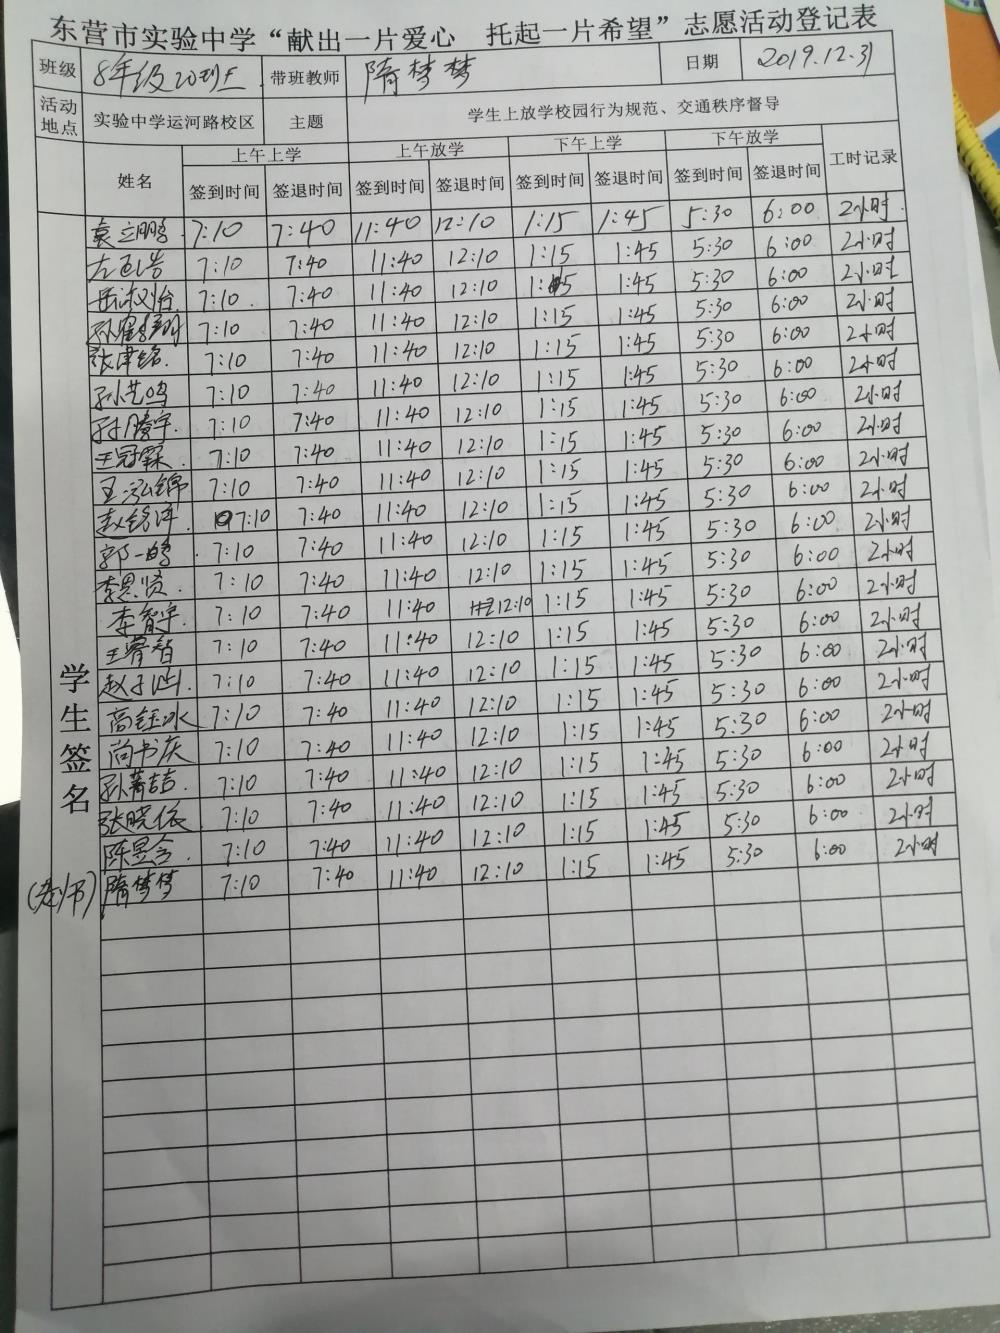 东营市实验中学“献出一片爱心 托起一片希望”志愿活动登记表
班级 8年级20班 带班教师 隋梦梦 日期 2019.12.31
活动地点 实验中学运河路校区 主题 学生上放学校园行为规范、交通秩序督导
姓名 上午上学 上午放学 下午上学 下午放学 工时记录
签到时间 签退时间 签到时间 签退时间 签到时间 签退时间 签到时间 签退时间
学生签名
袁立鹏 7:10 7:40 11:40 12:10 1:15 1:45 5:30 6:00 2小时
7:10 7:40 11:40 12:10 1:15 1:45 5:30 6:00 2小时
7:10 7:40 11:40 12:10 1:15 1:45 5:30 6:00 2小时
7:10 7:40 11:40 12:10 1:15 1:45 5:30 6:00 2小时
张津铭 7:10 7:40 11:40 12:10 1:15 1:45 5:30 6:00 2小时
孙艺鸣 7:10 7:40 11:40 12:10 1:15 1:45 5:30 6:00 2小时
孙腾宇 7:10 7:40 11:40 12:10 1:15 1:45 5:30 6:00 2小时
王冠霖 7:10 7:40 11:40 12:10 1:15 1:45 5:30 6:00 2小时
王泓锦 7:10 7:40 11:40 12:10 1:15 1:45 5:30 6:00 2小时
赵铭泽 7:10 7:40 11:40 12:10 1:15 1:45 5:30 6:00 2小时
郭一鸣 7:10 7:40 11:40 12:10 1:15 1:45 5:30 6:00 2小时
李恩贤 7:10 7:40 11:40 12:10 1:15 1:45 5:30 6:00 2小时
李智宇 7:10 7:40 11:40 12:10 1:15 1:45 5:30 6:00 2小时
王睿智 7:10 7:40 11:40 12:10 1:15 1:45 5:30 6:00 2小时
赵子涵 7:10 7:40 11:40 12:10 1:15 1:45 5:30 6:00 2小时
高钰冰 7:10 7:40 11:40 12:10 1:15 1:45 5:30 6:00 2小时
尚书庆 7:10 7:40 11:40 12:10 1:15 1:45 5:30 6:00 2小时
孙菁喆 7:10 7:40 11:40 12:10 1:15 1:45 5:30 6:00 2小时
张晓依 7:10 7:40 11:40 12:10 1:15 1:45 5:30 6:00 2小时
陈昱含 7:10 7:40 11:40 12:10 1:15 1:45 5:30 6:00 2小时
(老师) 隋梦梦 7:10 7:40 11:40 12:10 1:15 1:45 5:30 6:00 2小时